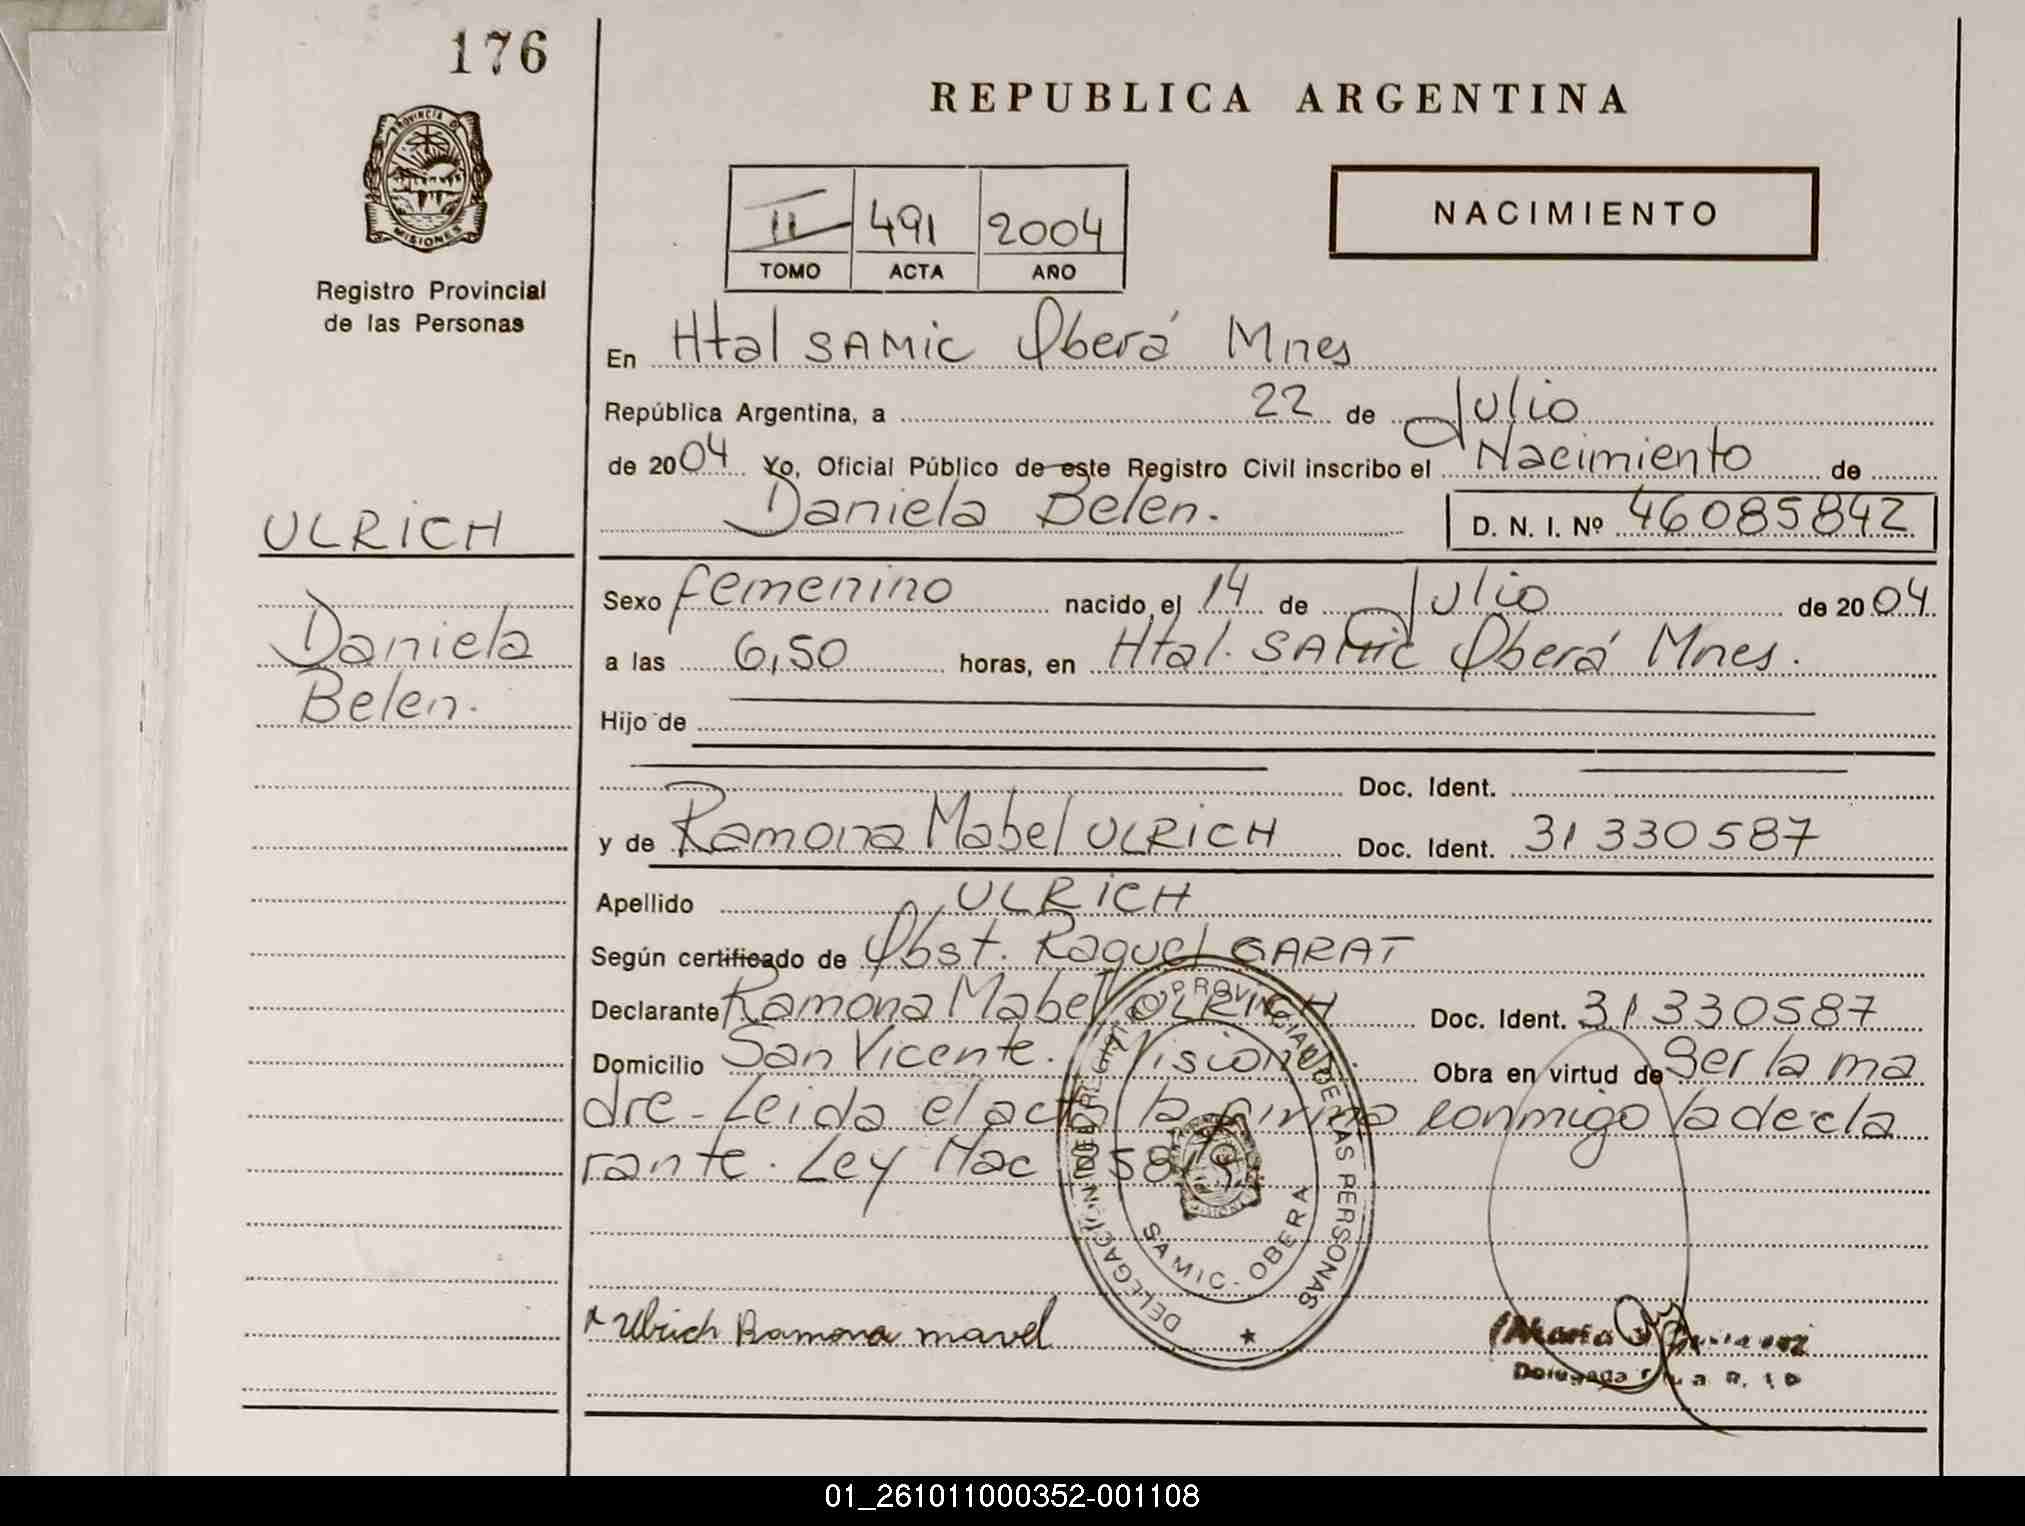 176
REPUBLICA ARGENTINA
PROVINCIA D
MISIONES
Registro Provincial
de las Personas
II 491 2004
TOMO ACTA AÑO
NACIMIENTO
En Htal SAMic Oberá Mnes
República Argentina, a 22 de Julio
de 2004 Yo, Oficial Público de este Registro Civil inscribo el Nacimiento de
Daniela Belen. D. N. I. Nº 46085842
ULRiCH
Daniela
Belen.
Sexo femenino nacido el 14 de Julio de 2004
a las 6,50 horas, en Htal. SAMic Oberá Mnes.
Hijo de
Doc. Ident.
y de Ramona Mabel ULRiCH Doc. Ident. 31330587
Apellido ULRiCH
Según certificado de Obst. Raquel GARAT
Declarante Ramona Mabel ULRiCH Doc. Ident. 31330587
Domicilio San Vicente. Misiones Obra en virtud de Ser la ma
dre - Leida el acta la firma conmigo la decla
rante. Ley Nac
DELEGACION DEL REGISTRO PROVINCIAL DE LAS PERSONAS
SAMIC - OBERA
Ulrich Ramona mavel
Maria
Delegada
01_261011000352-001108